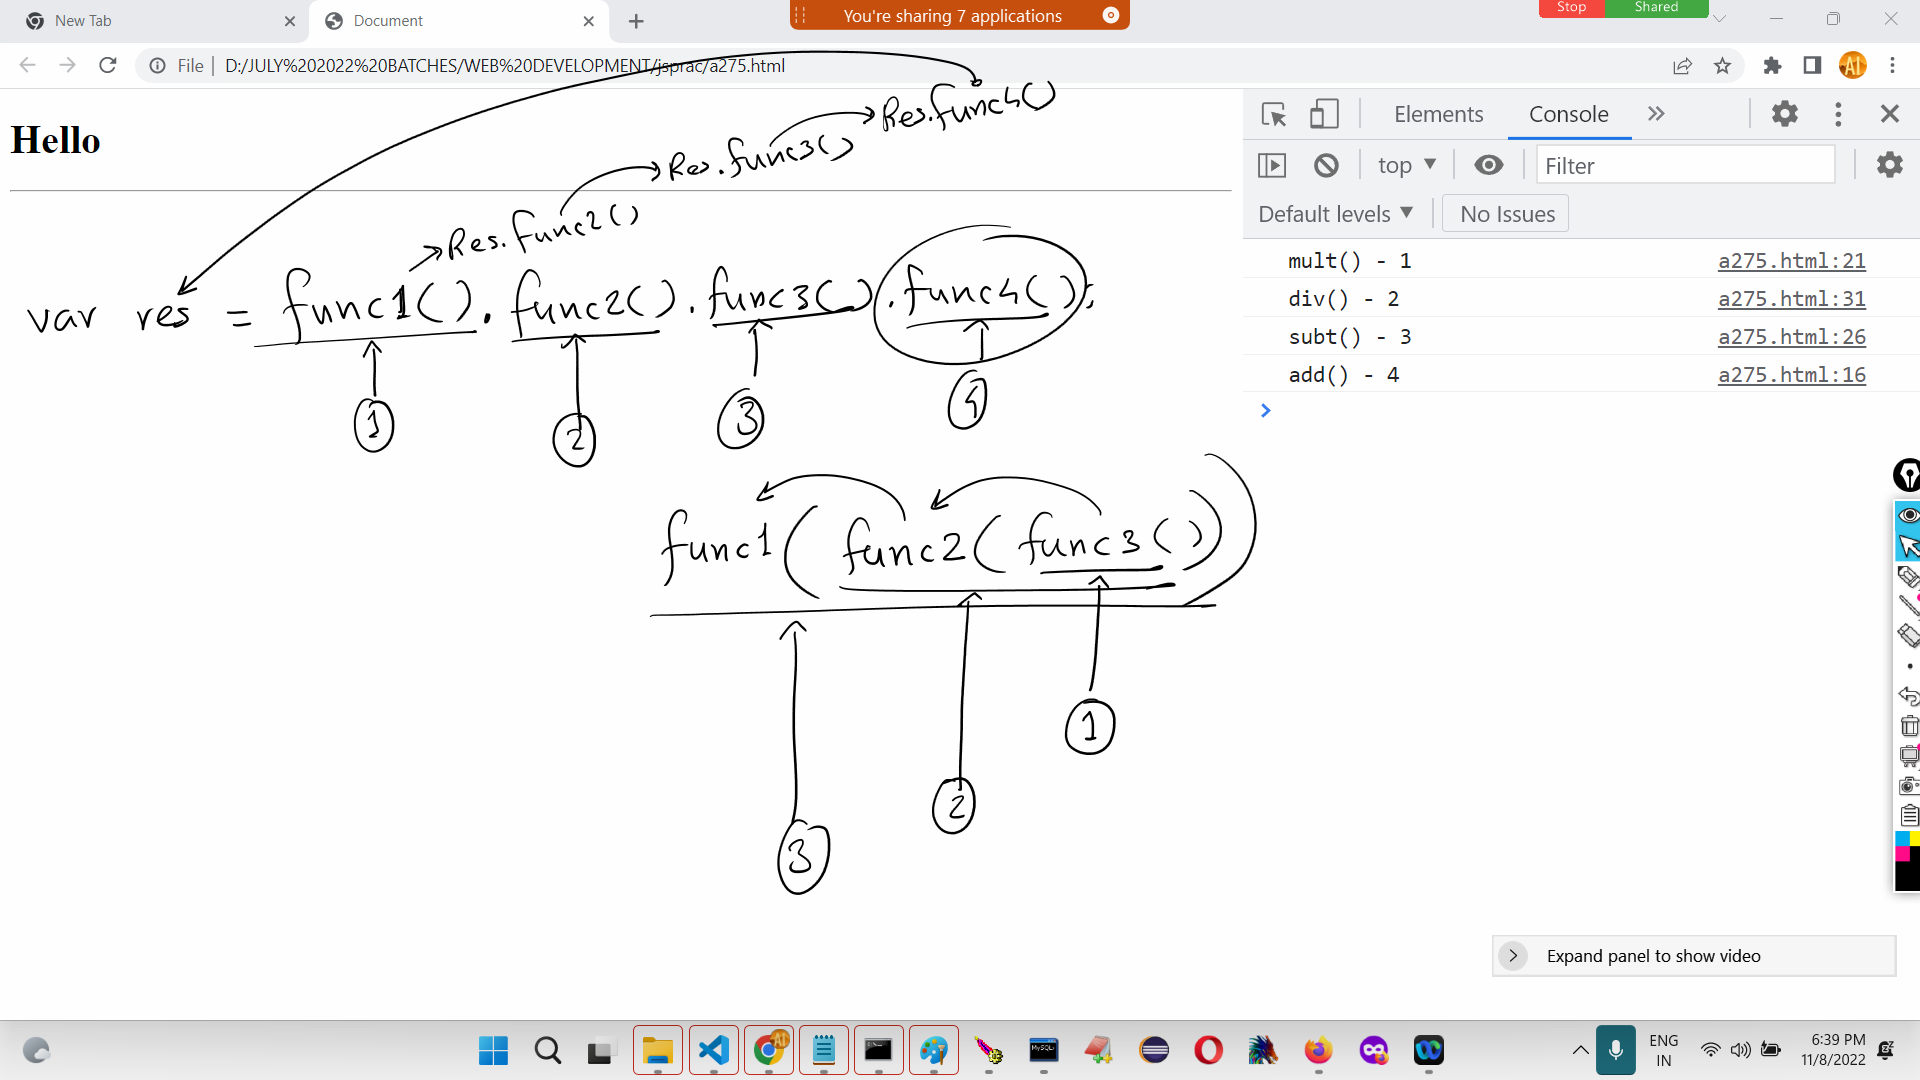 New Tab
Document
You're sharing 7 applications
Stop
Shared
File
D:/JULY%202022%20BATCHES/WEB%20DEVELOPMENT/jsprac/a275.html
AI
Hello
Res.func4()
Res.func3()
Res.func2()
var res = func1().func2().func3().func4();
1
2
3
4
func1(func2(func3()))
1
2
3
Elements
Console
top
Filter
Default levels
No Issues
mult() - 1 a275.html:21
div() - 2 a275.html:31
subt() - 3 a275.html:26
add() - 4 a275.html:16
Expand panel to show video
ENG
IN
6:39 PM
11/8/2022